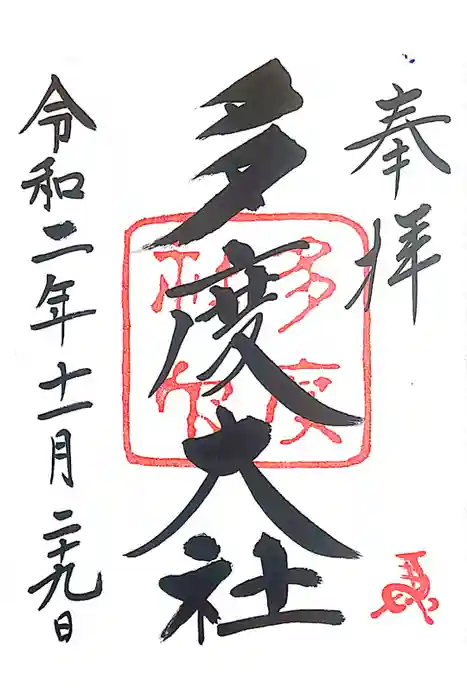 奉拝
多度大社
多度
神宮
令和二年十一月二十九日